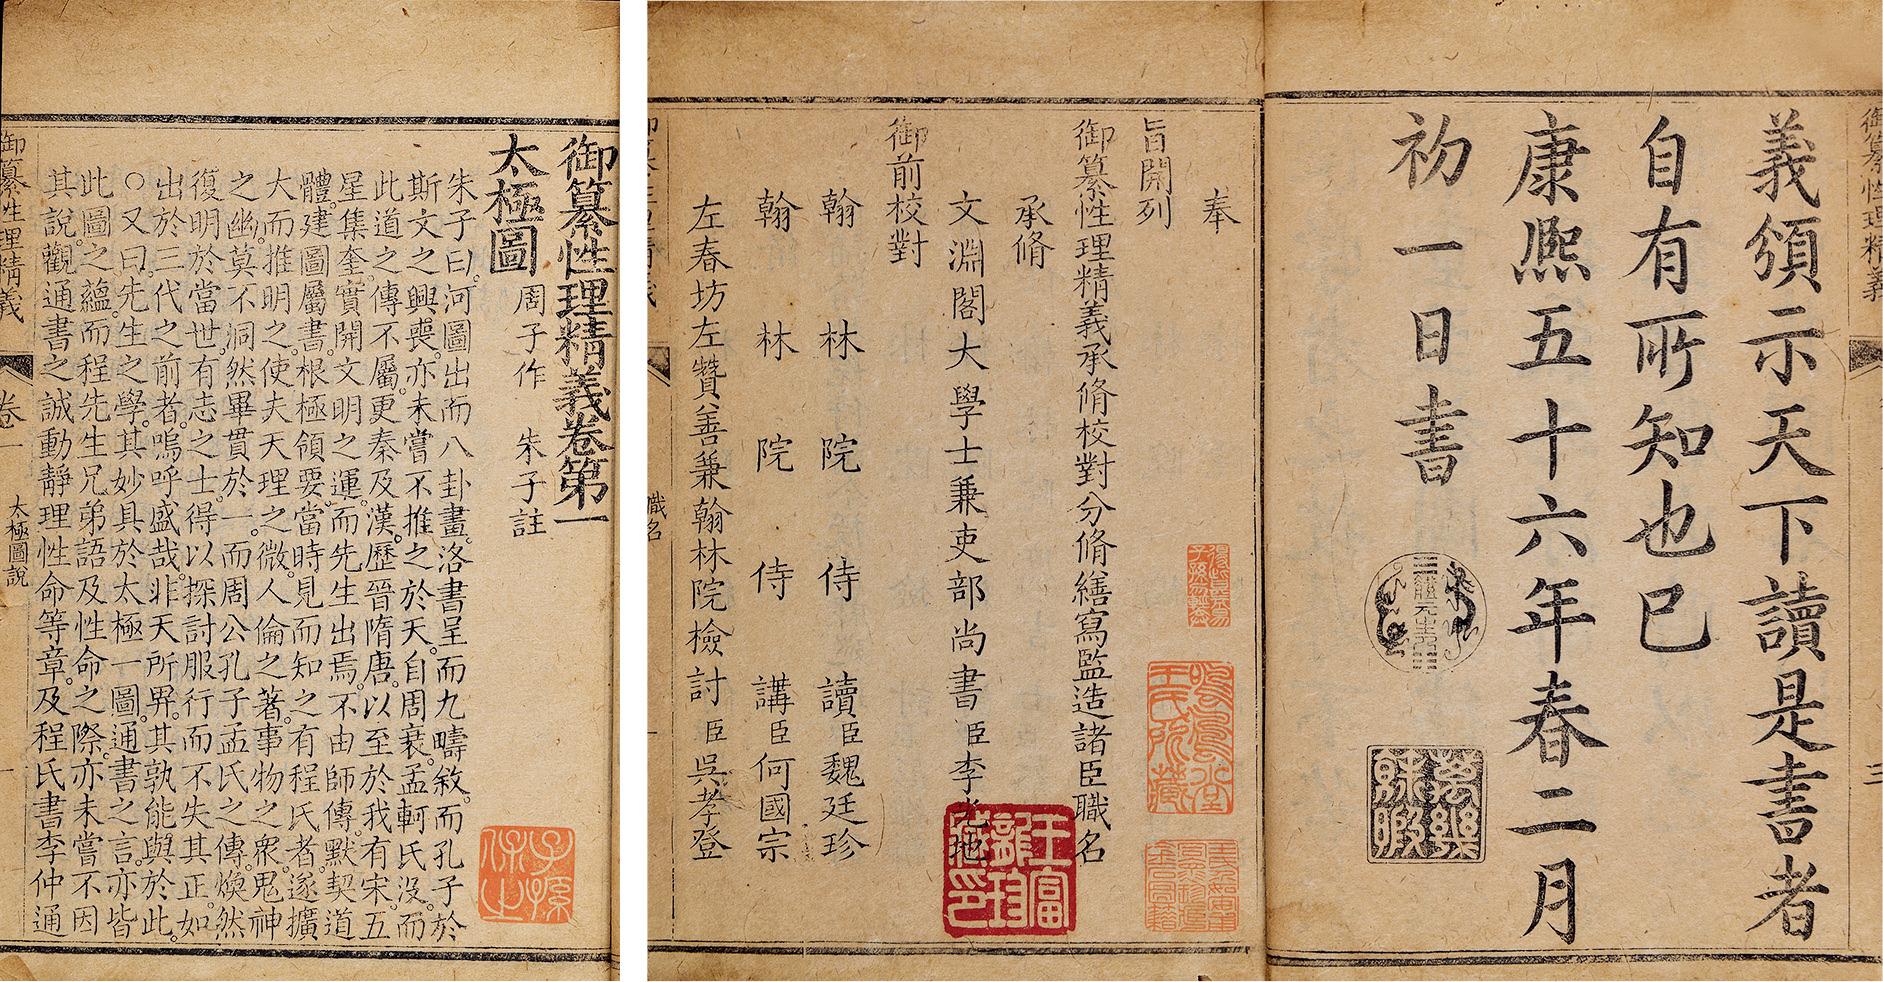 御纂性理精義
三
義頒示天下讀是書者
自有所知也已
康熙五十六年春二月
初一日書
體元主人
萬幾餘暇
奉
旨開列
御纂性理精義承脩校對分脩繕寫監造諸臣職名
承脩
文淵閣大學士兼吏部尚書臣李光地
御前校對
翰林院侍讀臣魏廷珍
翰林院侍講臣何國宗
左春坊左贊善兼翰林院檢討臣吳孝登
職名
御纂性理精義卷第一
太極圖 周子作 朱子註
朱子曰。河圖出而八卦畫。洛書呈而九疇敘。而孔子於
斯文之興喪。亦未嘗不推之於天。自周衰。孟軻氏沒。而
此道之傳不屬。更秦及漢。歷晉隋唐。以至於我有宋。五
星集奎。實開文明之運。而先生出焉。不由師傳。默契道
體。建圖屬書。根極領要。當時見而知之有程氏者。遂擴
大而推明之。使夫天理之微。人倫之著。事物之衆。鬼神
之幽。莫不洞然畢貫於一。而周公孔子孟氏之傳。煥然
復明於當世。有志之士。得以探討服行而不失其正。如
出於三代之前者。嗚呼盛哉。非天所畀。其孰能與於此。
○又曰。先生之學。其妙具於太極一圖。通書之言。亦皆
此圖之蘊。而程先生兄弟語及性命之際。亦未嘗不因
其說。觀通書之誠動靜理性命等章。及程氏書李仲通
子孫保之
御纂性理精義
卷一
太極圖說
一